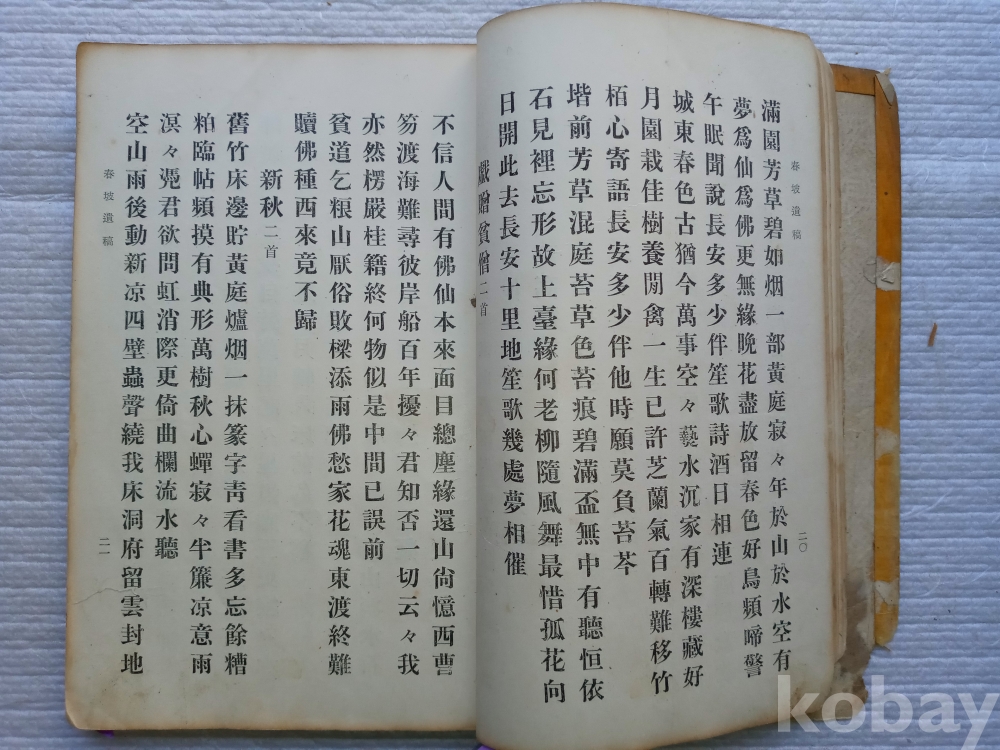 春坡遺稿
二〇
滿園芳草碧如烟一部黃庭寂々年於山於水空有
夢爲仙爲佛更無緣晚花盡放留春色好鳥頻啼警
午眠聞說長安多少伴笙歌詩酒日相連
城東春色古猶今萬事空々藝水沉家有深樓藏好
月園栽佳樹養閒禽一生已許芝蘭氣百轉難移竹
栢心寄語長安多少伴他時願莫負苔岑
堦前芳草混庭苔草色苔痕碧滿盃無中有聽恒依
石見裡忘形故上臺緣何老柳隨風舞最惜孤花向
日開此去長安十里地笙歌幾處夢相催
戲贈貧僧二首
不信人間有佛仙本來面目總塵緣還山尙憶西曹
笏渡海難尋彼岸船百年擾々君知否一切云々我
亦然楞嚴桂籍終何物似是中間已誤前
貧道乞粮山厭俗敗樑添雨佛愁家花魂東渡終難
贖佛種西來竟不歸
新秋二首
舊竹床邊貯黃庭爐烟一抹篆字靑看書多忘餘糟
粕臨帖頻摸有典形萬樹秋心蟬寂々半簾凉意雨
溟々凴君欲問虹消際更倚曲欄流水聽
空山雨後動新凉四壁蟲聲繞我床洞府留雲封地
春坡遺稿
二一
kobay